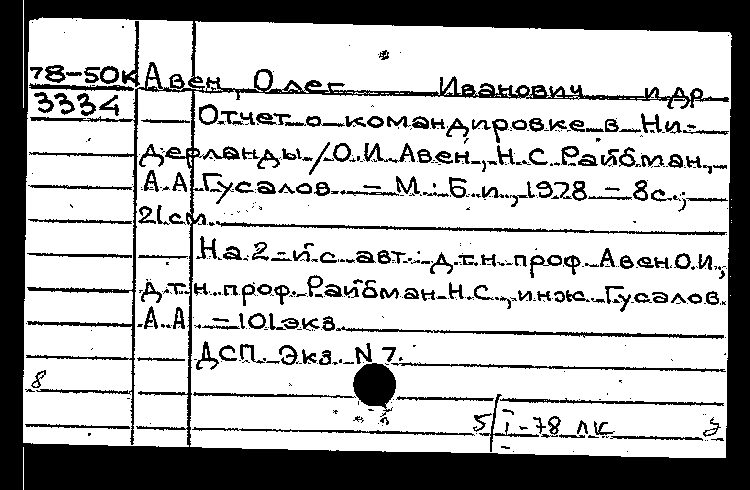 78-50к Авен, Олег Иванович и др
3334 Отчет о командировке в Ни-
дерланды/О.И. Авен, Н.С. Райбман,
А.А. Гусалов. - М.: Б.и., 1978 - 8с.;
21см.
На 2-й с авт.: д.т.н. проф. Авен О.И.,
д.т.н. проф. Райбман Н.С., инж. Гусалов
А.А. - 101экз.
ДСП. Экз. N 7.
8
5/I-78 лк